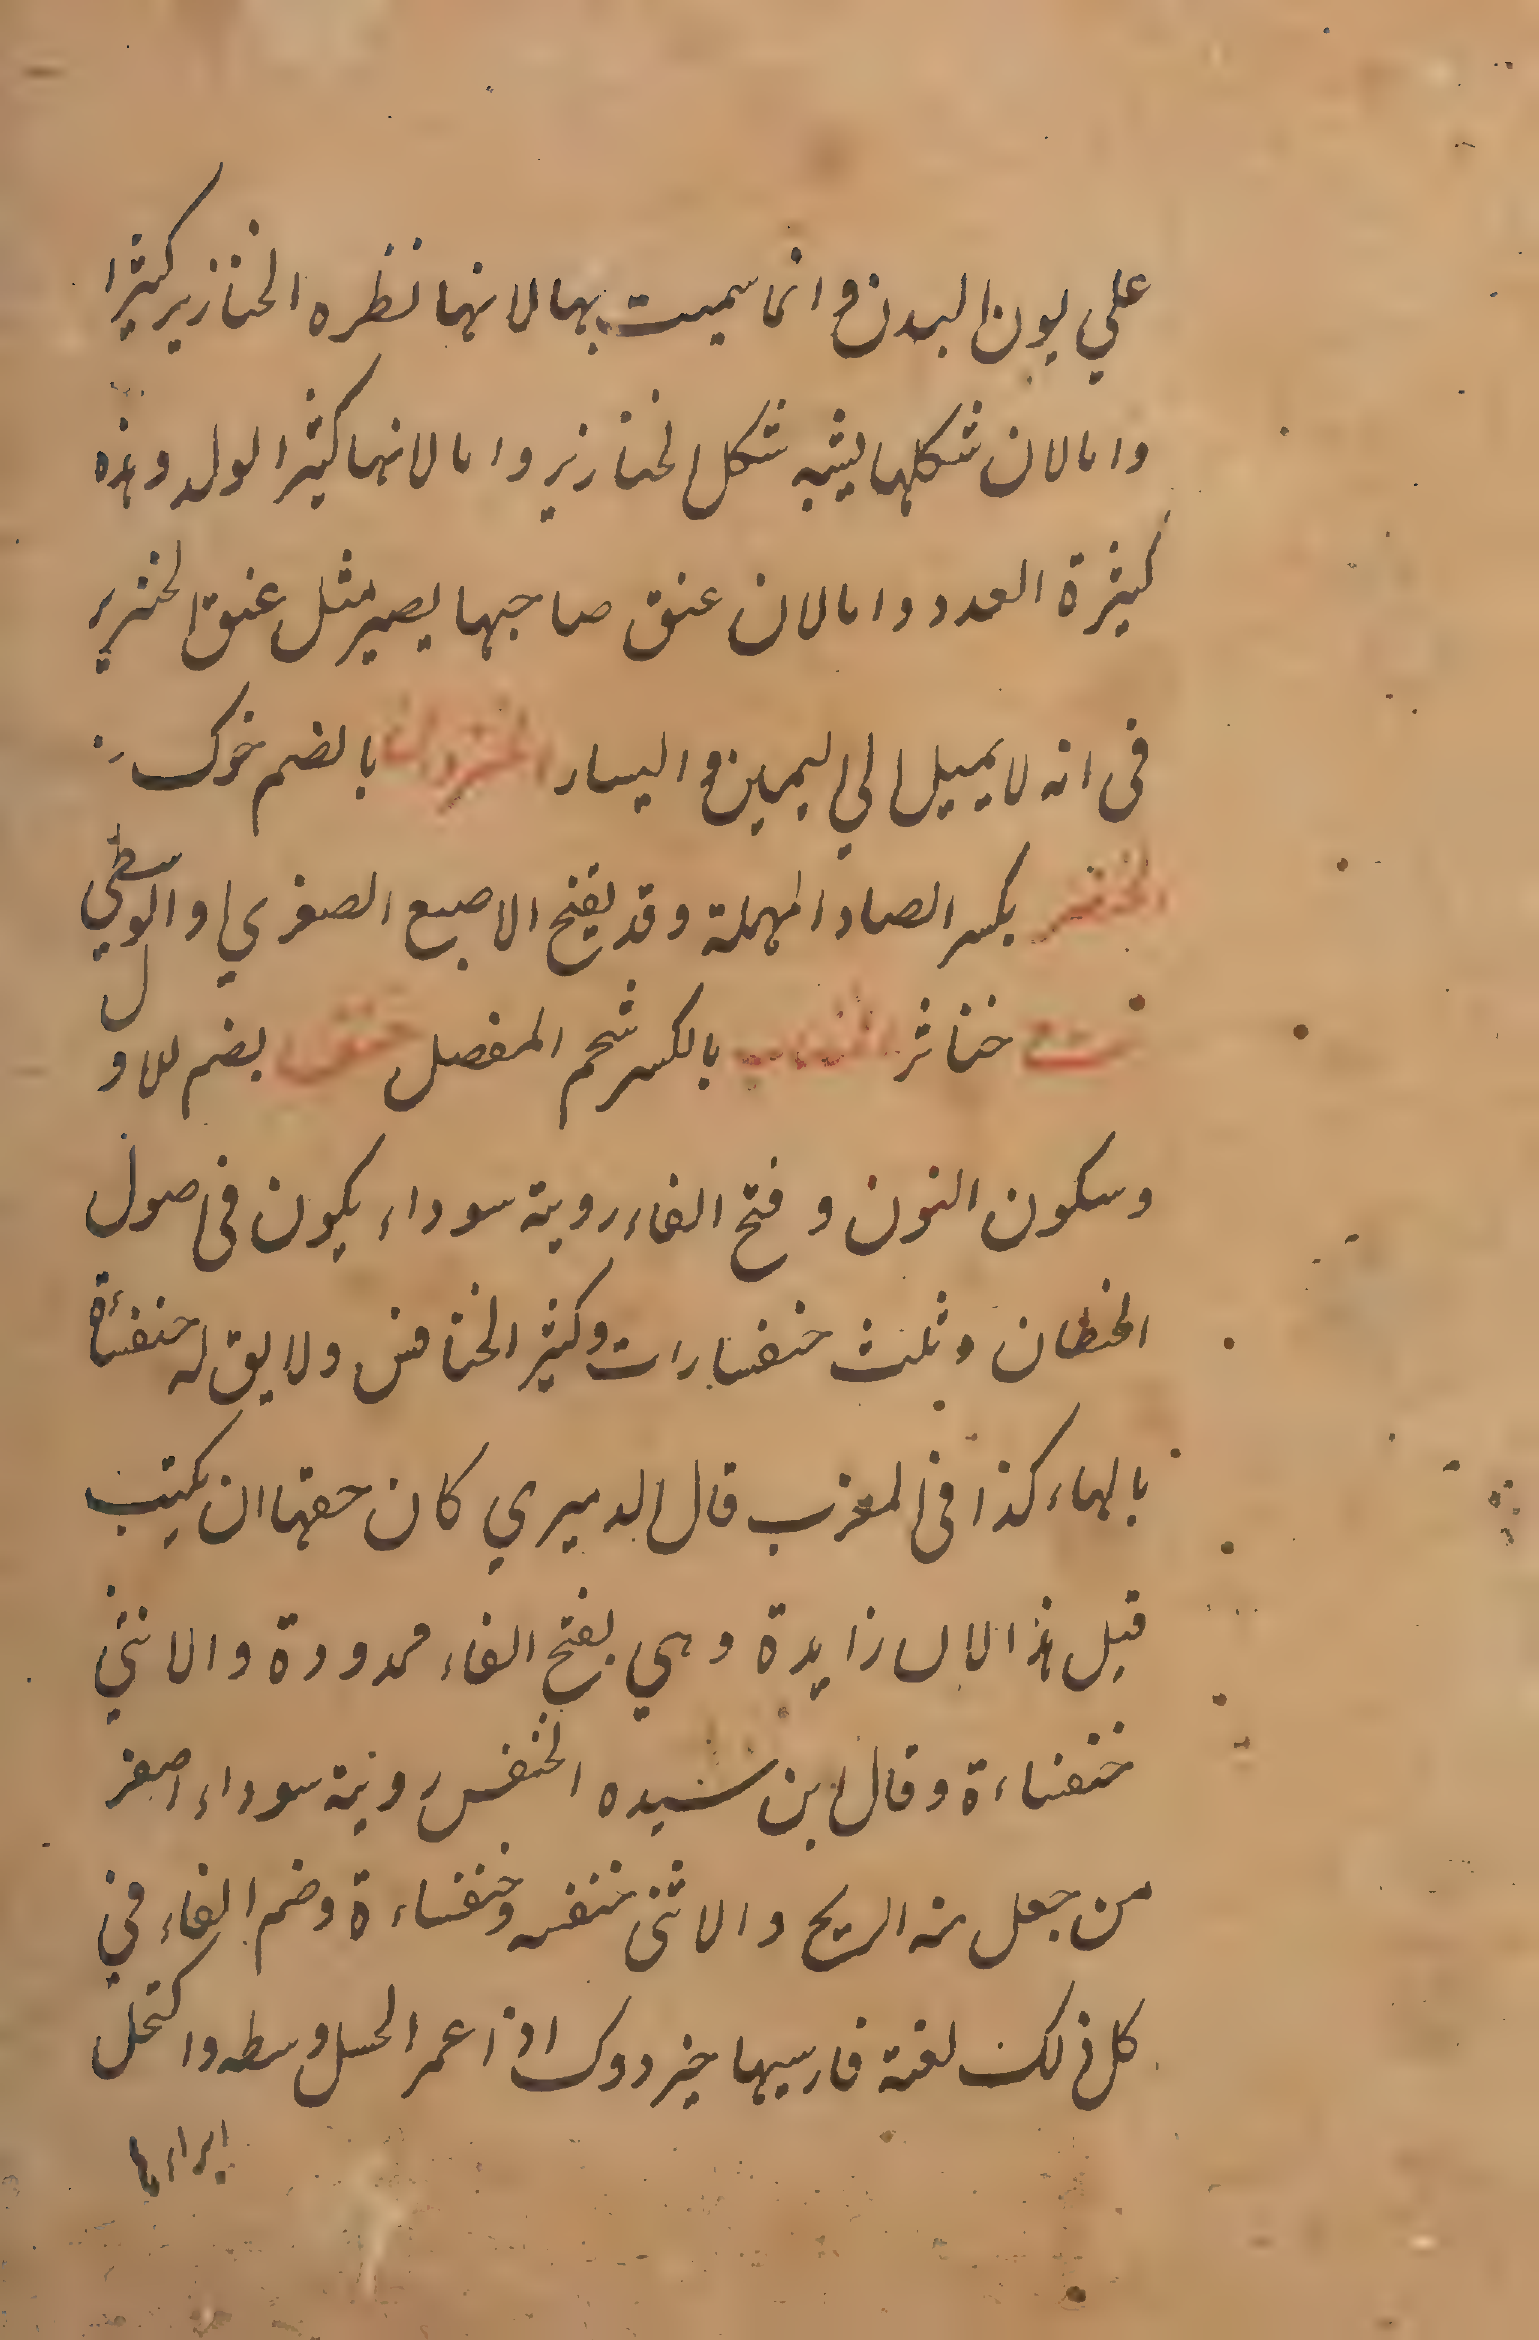 علي لون البدن وانما سميت بها لانها نظره الخنازير كثيرا
واما لان شكلها يشبه شكل الخنازير واما لانها كثير الولد وهذه
كثيرة العدد واما لان عنق صاحبها يصير مثل عنق الخنزير
فى انه لا يميل الي اليمين و اليسار بالضم خوك
الخنصر بكسر الصاد المهملة وقد يفتح الاصبع الصغري او الوسطي
خناثر بالكسر شحم المفصل خنفس بضم للاول
وسكون النون و فتح الفاء روبية سوداء يكون فى اصول
الحنطان وثلث خنفسارات وكثير الخنافس ولا يق له خنفسأة
بالهاء كذا فى المغرب قال الدميري كان حقها ان يكتب
قبل هذا الا ان زايدة وهي بفتح الفاء ممدودة والانثي
خنفساءة وقال ابن سيده الخنفس روبية سوداء اصغر
من جعل منه الريح والانثى خنفسه وخنفساءة وضم الفاء في
كل ذلك لغة فارسيها خبزدوك اذا عمر الحسل وسطه واكتحل